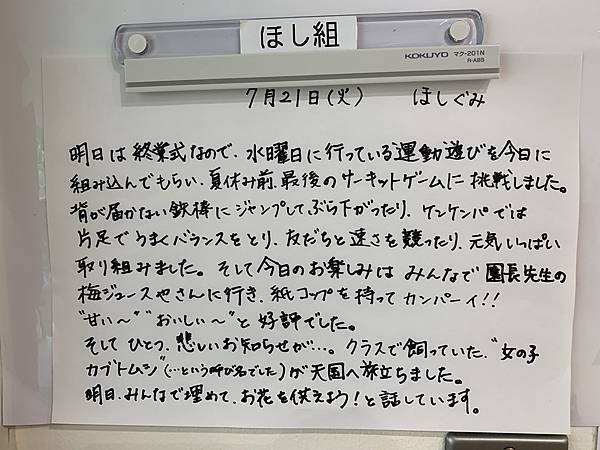 ほし組
KOKUYO マク-201N
R-ABS
7月21日(火) ほしぐみ
明日は終業式なので、水曜日に行っている運動遊びを今日に
組み込んでもらい、夏休み前、最後のサーキットゲームに挑戦しました。
背が届かない鉄棒にジャンプしてぶら下がったり、ケンケンパでは
片足でうまくバランスをとり、友だちと速さを競ったり、元気いっぱい
取り組みました。そして今日のお楽しみはみんなで園長先生の
梅ジュースやさんに行き、紙コップを持ってカンパーイ!!
"甘い〜" "おいしい〜"と好評でした。
そしてひとつ、悲しいお知らせが…。クラスで飼っていた、"女の子
カブトムシ"(…という呼び名でした)が天国へ旅立ちました。
明日、みんなで埋めて、お花を供えよう!と話しています。